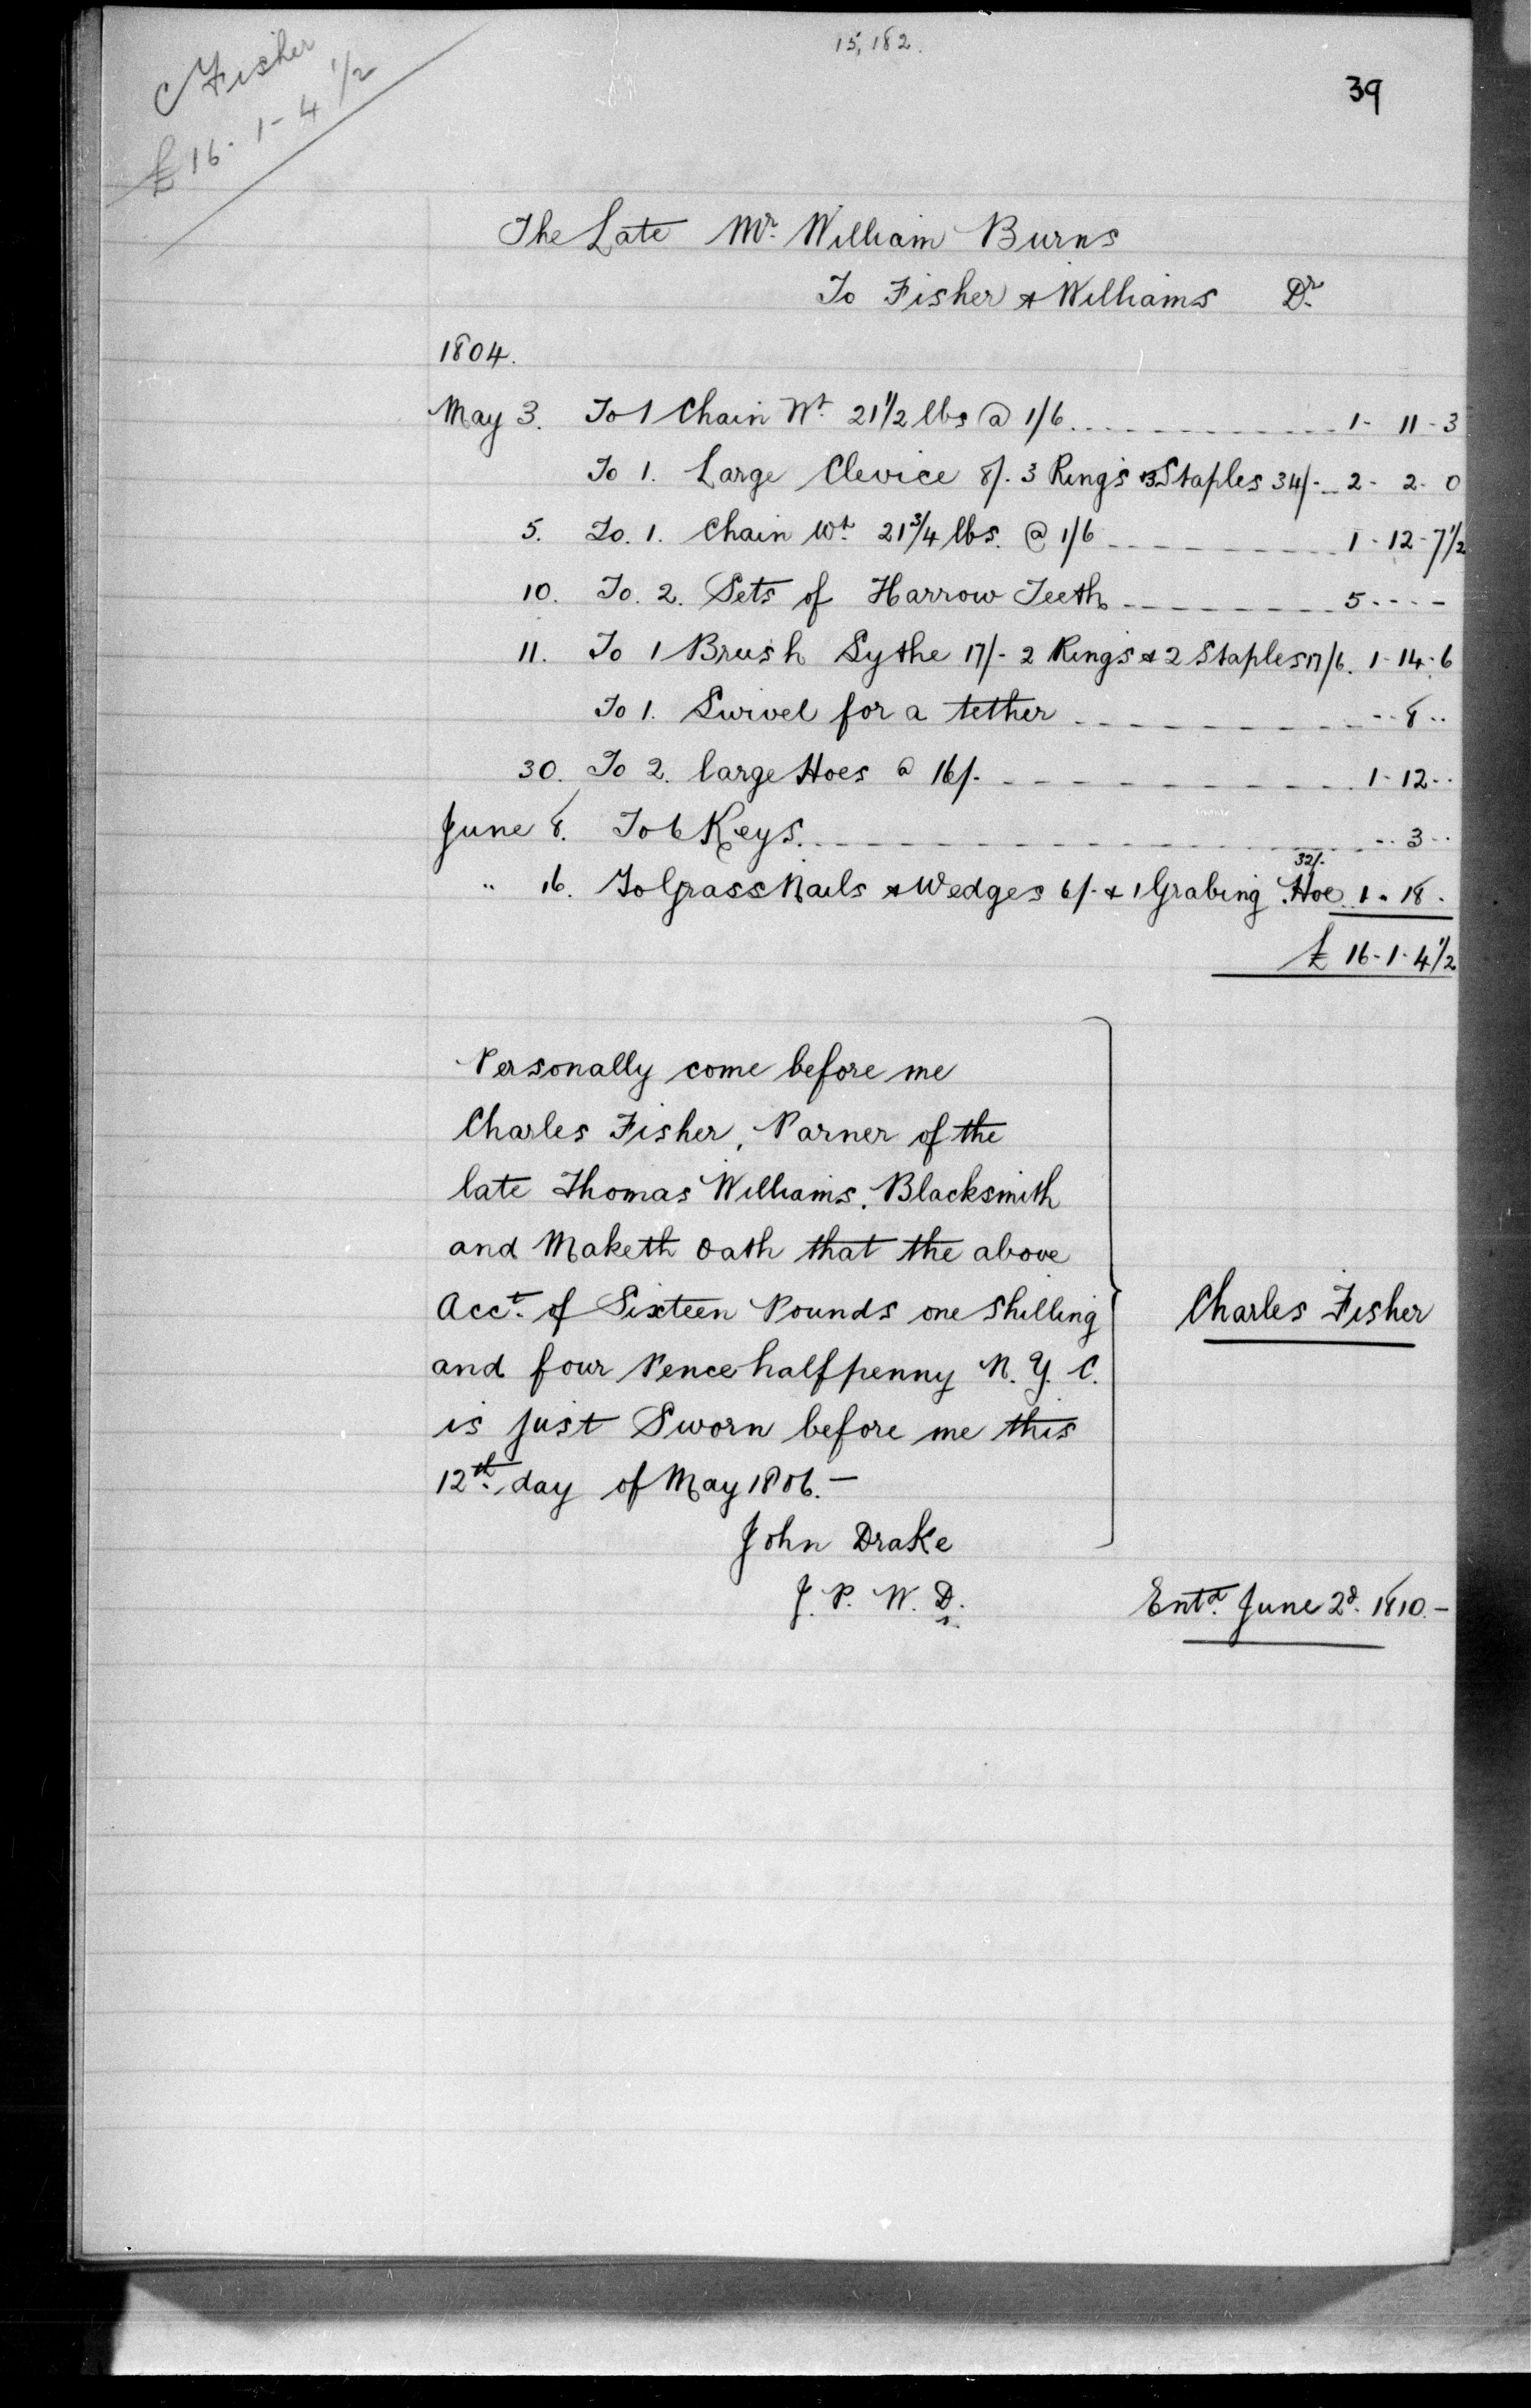 15,182.
39
C Fisher
£ 16-1-4 1/2
The Late Mr. William Burns
To Fisher & Williams Dr.
1804.
May 3. To 1 Chain Wt. 21 1/2 lbs @ 1/6 1- 11-3
To 1. Large Clevice 8/. 3 Rings & 3 Staples 34/- 2- 2- 0
5. To. 1. Chain Wt. 21 3/4 lbs. @ 1/6 1-12-7 1/2
10. To. 2. Sets of Harrow Teeth 5----
11. To 1 Brush Sythe 17/- 2 Rings & 2 Staples 17/6. 1-14-6
To 1. Swivel for a tether --8--
30. To 2. large Hoes @ 16/- 1-12--
June 8. To 6 Keys. --3--
" 16. To Grass Nails & Wedges 6/- & 1 Grabing Hoe 32/. 1-18-
£ 16-1-4 1/2
Personally come before me
Charles Fisher, Parner of the
late Thomas Williams, Blacksmith
and Maketh Oath that the above
Acct. of Sixteen Pounds one Shilling
and four Pence halfpenny N. Y. C.
is just Sworn before me this
12th. day of May 1806.-
John Drake
J. P. W. D.
Charles Fisher
Entd. June 2d. 1810.-